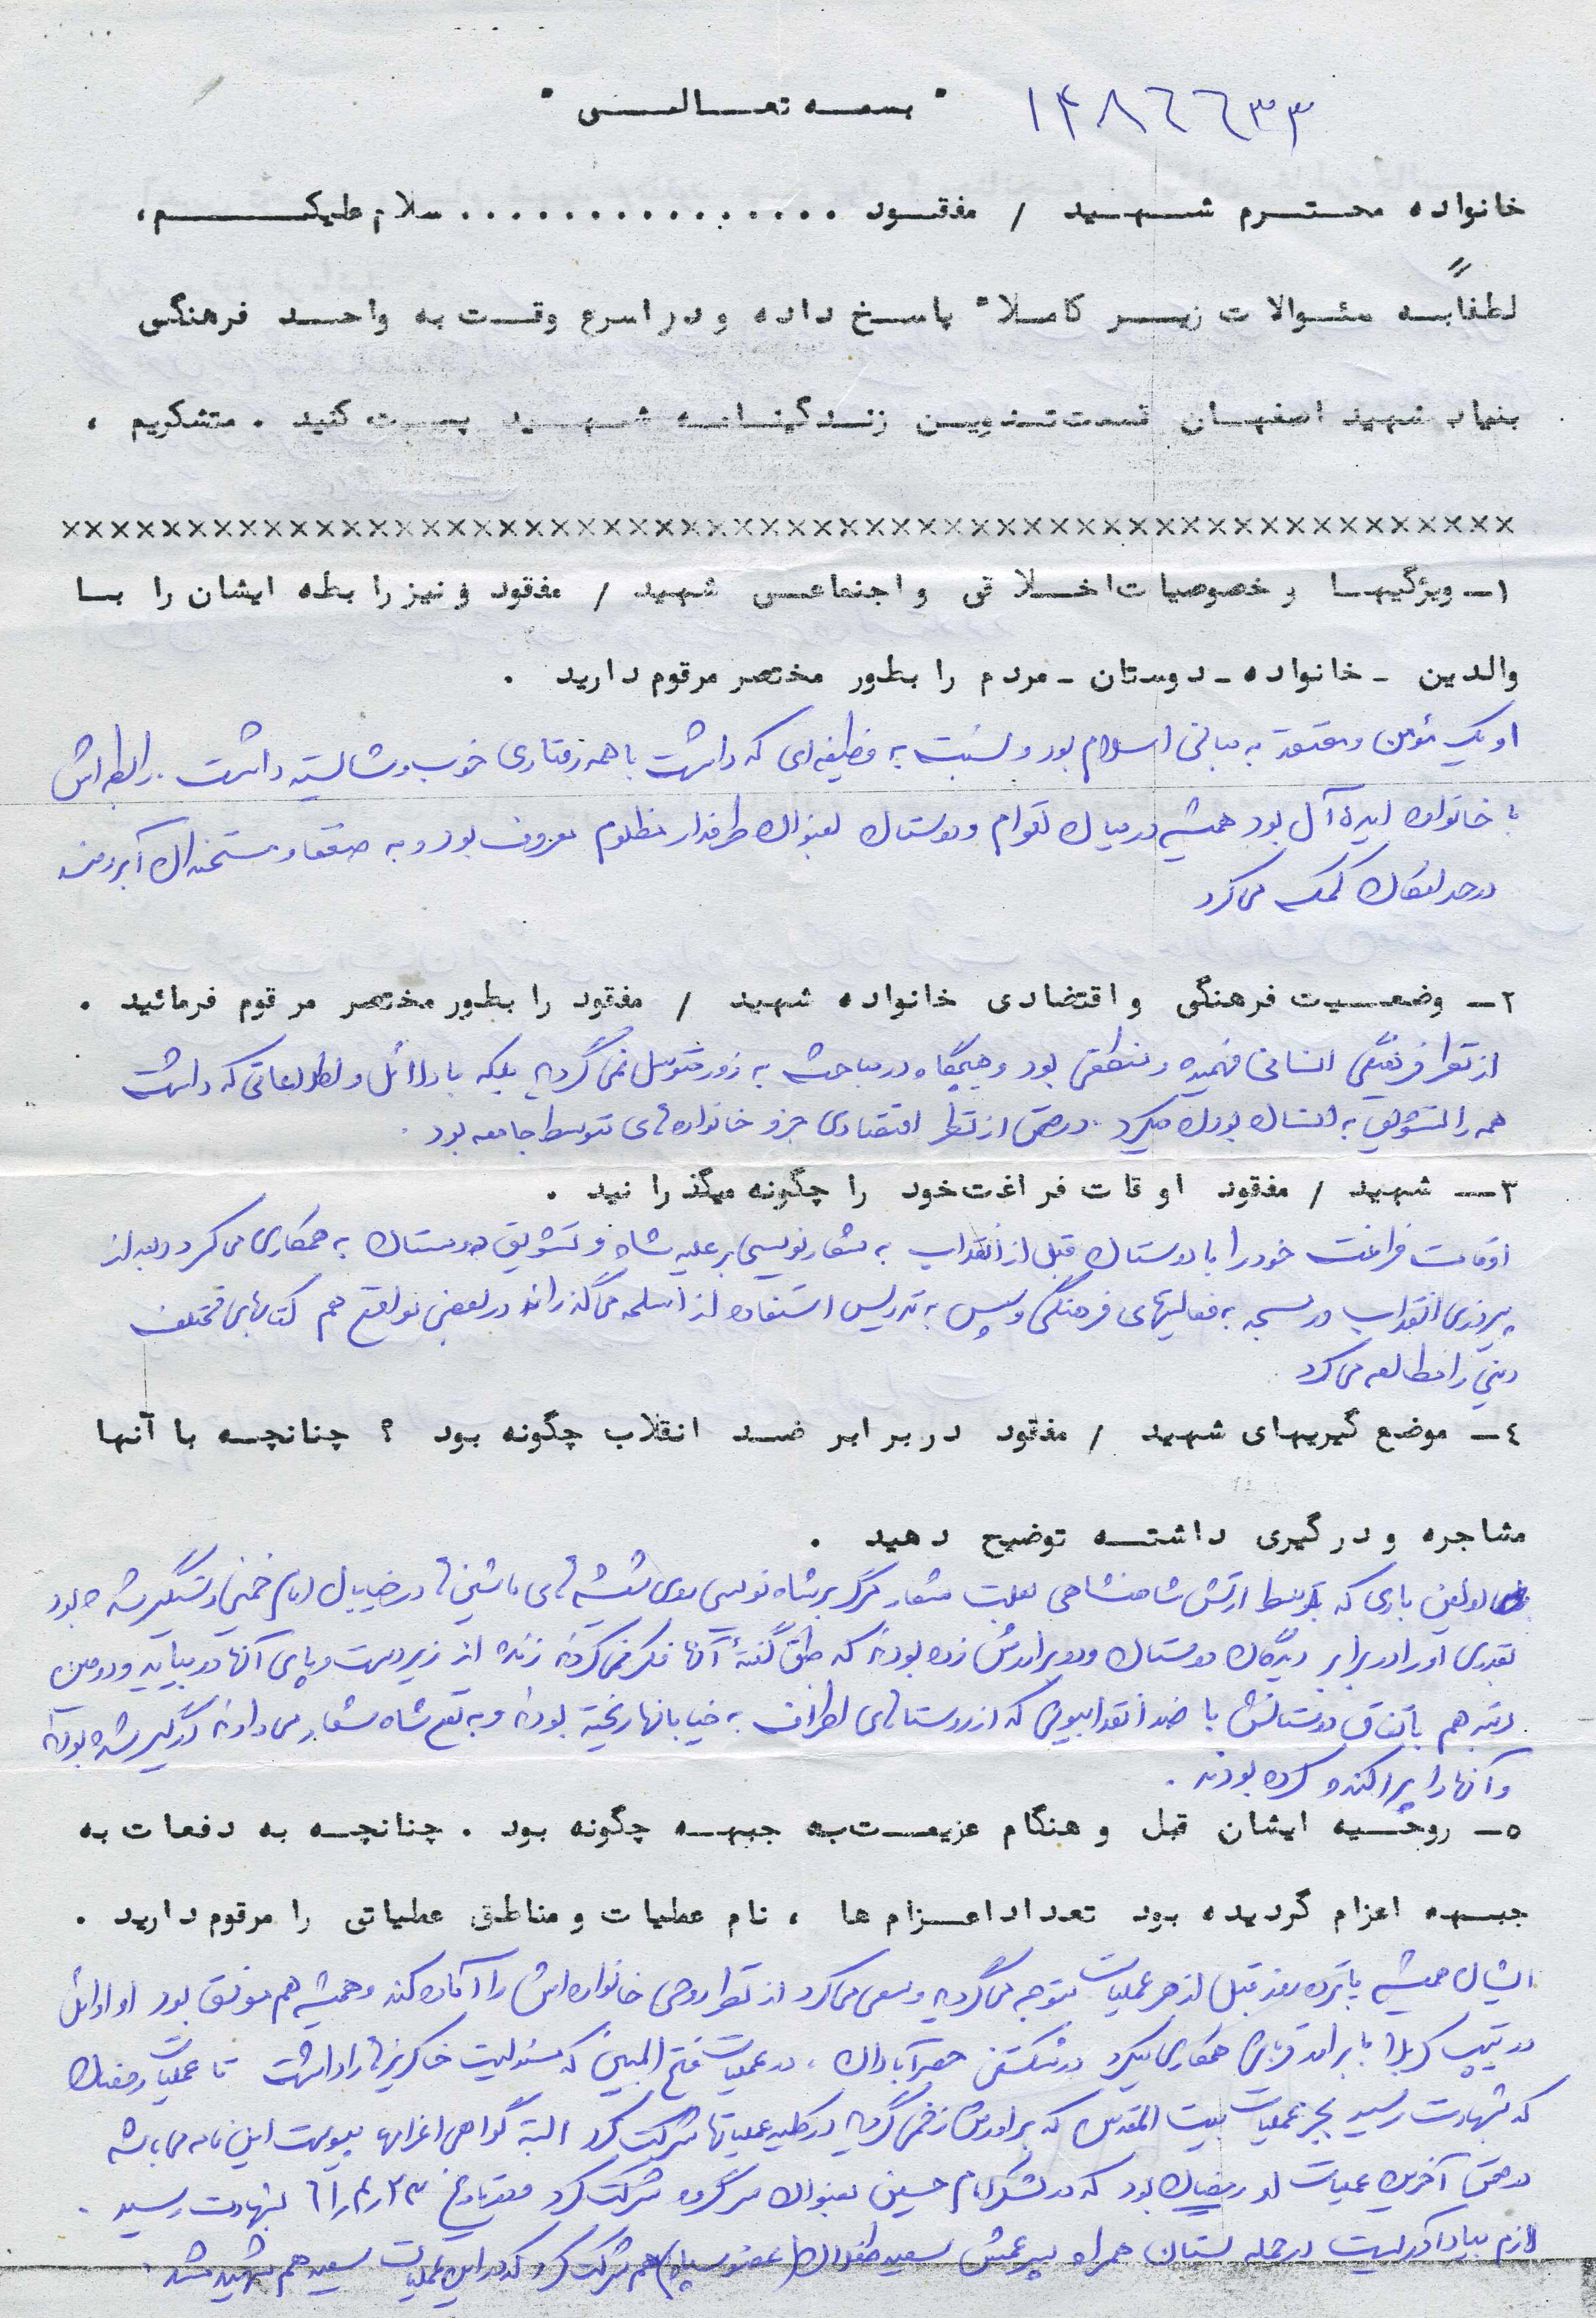 ۱۴۸٦٦۳۳
" بسمه تعالی "
خانواده محترم شهید / مفقود ................ سلام علیکم،
لطفاً به سئوالات زیر کاملا" پاسخ داده و در اسرع وقت به واحد فرهنگی
بنیاد شهید اصفهان قسمت تدوین زندگینامه شهید پست کنید . متشکریم ،
××××××××××××××××××××××××××××××××××××××××××××××××××××××××
۱- ویژگیها و خصوصیات اخلاقی و اجتماعی شهید / مفقود و نیز رابطه ایشان را با
والدین - خانواده - دوستان - مردم را بطور مختصر مرقوم دارید .
او یک مؤمن و معتقد به مبانی اسلام بود و نسبت به وظیفه‌ای که داشت با همه رفتاری خوب و شایسته داشت . رابطه‌اش
با خانواده ایده‌آل بود همیشه در میان اقوام و دوستان بعنوان طرفدار مظلوم معروف بود و به ضعفا و مستمندان آبرومند
در حد امکان کمک می‌کرد
۲- وضعیت فرهنگی و اقتضادی خانواده شهید / مفقود را بطور مختصر مرقوم فرمائید .
از نظر فرهنگی انسانی فهمیده و منطقی بود و هیچگاه در مباحث به زور متوسل نمی‌گردید بلکه با دلائل و اطلاعاتی که داشت
همه را تشویق به انسان بودن میکرد . در ضمن از نظر اقتصادی جزو خانواده‌های متوسط جامعه بود .
۳- شهید / مفقود اوقات فراغت خود را چگونه میگذرانید .
اوقات فراغت خود را با دوستان قبل از انقلاب به شعارنویسی بر علیه شاه و تشویق دوستان به همکاری می‌کرد و بعد از
پیروزی انقلاب در مسجد به فعالیتهای فرهنگی و سپس به تدریس استفاده از اسلحه می‌گذراند در بعضی مواقع هم کتابهای مختلف
دینی را مطالعه می‌کرد
٤- موضع گیریهای شهید / مفقود در برابر ضد انقلاب چگونه بود ؟ چنانچه با آنها
مشاجره و درگیری داشته توضیح دهید .
اولین باری که توسط ارتش شاهنشاهی بعلت شعار مرگ بر شاه نویسی روی شیشه‌های ماشینها در خیابان امام خمینی دستگیر شده بود
بقدری او را در برابر دیدگان دوستان و دو برادرش زده بودند که طبق گفتهٔ آنها فکر نمی‌کردند زنده از زیر دست و پای آنها در بیاید و دومین
مرتبه هم باتفاق دوستانش با ضد انقلابیونی که از روستاهای اطراف به خیابانها ریخته بودند و به نفع شاه شعار می‌دادند درگیر شده بودند
و آنها را پراکنده کرده بودند .
٥- روحیه ایشان قبل و هنگام عزیمت به جبهه چگونه بود . چنانچه به دفعات به
جبهه اعزام گردیده بود تعداد اعزام ها ، نام عملیات و مناطق عملیاتی را مرقوم دارید .
ایشان همیشه پانزده روز قبل از هر عملیات متوجه می‌گردید و سعی می‌کرد از نظر روحی خانواده‌اش را آماده کند و همیشه هم موفق بود او اوائل
در تیپ کربلا با برادر قربانی همکاری میکرد در شکستن حصر آبادان ، در عملیات فتح المبین که مسئولیت خاکریزها را داشت تا عملیات رمضان
که بشهادت رسید بجز عملیات بیت المقدس که برادرش زخمی گردید در کلیه عملیاتها شرکت کرد البته گواهی اعزامها پیوست این نامه می‌باشد
در ضمن آخرین عملیات او رمضان بود که در لشکر امام حسین بعنوان سرگروه شرکت کرد و در تاریخ ۲۳ر۴ر٦۱ بشهادت رسید .
لازم بیادآوریست در حمله بستان همراه پسر عمش سعید طغولان (عضو سپاه) هم شرکت کرد که در این عملیات سعید هم شهید شد .